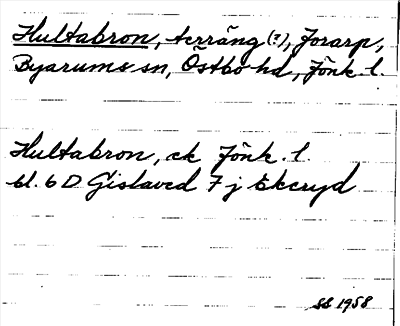 Hultabron, terräng (?), Jorarp,
Byarums sn, Östbo hd, Jönk. l.
Hultabron, ek Jönk. l.
bl. 6 D Gislaved 7 j Ekeryd
SS 1958